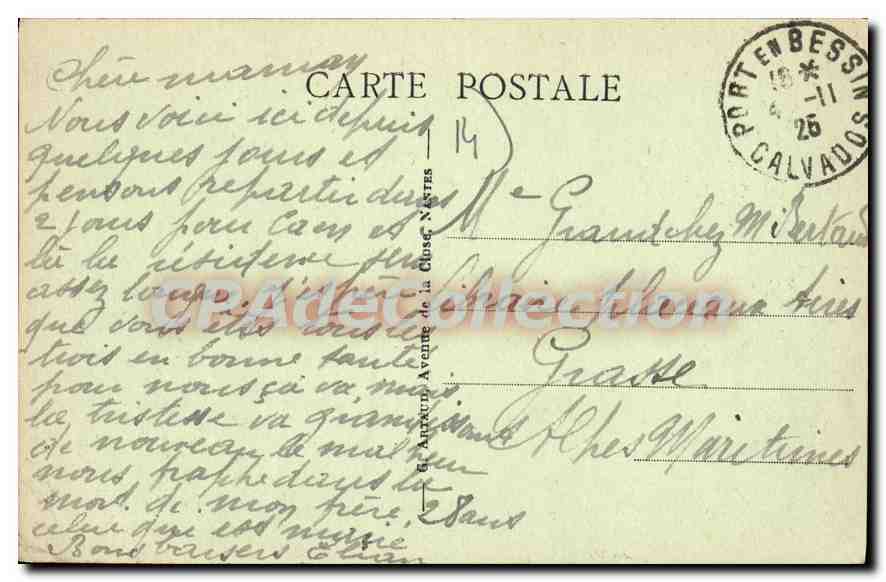 CARTE POSTALE
PORT EN BESSIN
CALVADOS
18 *
-11
25
14
Chère maman
Nous voici ici depuis
quelques jours et
pensons repartir dans
2 jours pour Caen et
là la résidence sera
assez longue. J'espère
que vous êtes tous les
trois en bonne santé
pour nous ça va, mais
la tristesse va grandissant
de nouveau le malheur
nous frappe dans la
mort de mon frère, 28 ans
celui qui est marié
Bons baisers
G. ARTAUD, Avenue de la Close, NANTES
Me Grand chez M Bertrand
Libraire place aux Aires
Grasse
Alpes Maritimes
CPAdeCollection